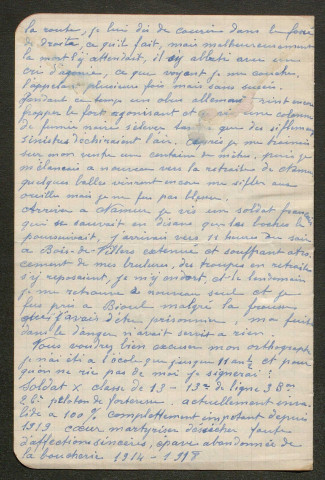 la route, je lui dis de courir dans le fossé
de droite, ce qu'il fait, mais malheureusement
la mort l'y attendait, il s'y abbatit avec un
cri d'agonie, ce que voyant je me couchai
l'appelai plusieurs fois mais sans succès.
Pendant ce temps un obus allemand vint encore
frapper le fort agonisant et une colonne
de fumée noire s'éleva que des siflements
sinistres dechiraient l'air. Après je me trainais
sur mon ventre une centaine de mètres, puis je
m'élancais a nouveau vers la retraite de Namur
quelques balles vinrent encore me sifler aux
oreille mais je ne fus pas blessé.
Arrivé a Namur je vis un soldat français
qui se sauvait en disant que les boches le
poursuivait, j'arrivai vers 11 heures du soir
a Bois-de-Villers extenué et souffrant atro
cement de mes brulures, des troupes en retraite
s'y reposaient, je m'y endort, et le lendemain
je me retrouve a nouveau seul et je
fus pris a Bioul malgré la frousse
que j'avais d'être prisonnier, ma fuite
dans le danger n'avait servit a rien.
Vous voudrez bien excuser mon orthographe
je n'ai été a l'école que jusque 11 ans ½ et pour
qu'on ne rie pas de moi je signerai:
Soldat X classe de 13 - 13e de ligne 3 Bon
2 Cie peloton de forteresse. actuellement inva-
lide a 100 % complettement impotant depuis
1919 cœur martyrisé désséché faute
d'affections sincères, épave abandonnée de
la boucherie 1914 - 1918